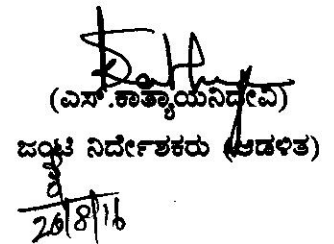 (ಎಸ್.ಕಾತ್ಯಾಯನಿದೇವಿ)
ಜಂಟಿ ನಿರ್ದೇಶಕರು (ಆಡಳಿತ)
26/8/16